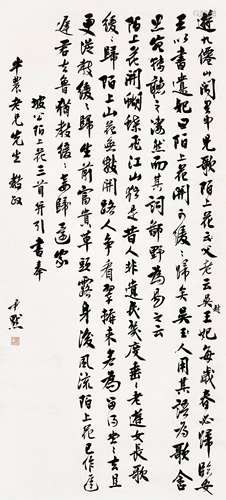 遊九僊山聞里中兒歌陌上花父老云吳越王妃每歲春必歸臨安
王以書遺妃曰陌上花開可緩〻歸矣吳人用其語為歌含
思宛轉聽之淒然而其詞鄙野為易之云
陌上花開蝴蝶飛江山猶是昔人非遺民幾度垂〻老遊女長歌
緩〻歸陌上山花無數開路人爭看翠軿來若為留得堂〻去且
更從教緩〻歸生前富貴草頭露身後風流陌上花已作遲
遲君去魯猶教緩〻妾歸家
坡公陌上花三首并引書奉
半農老兄先生教政
尹默